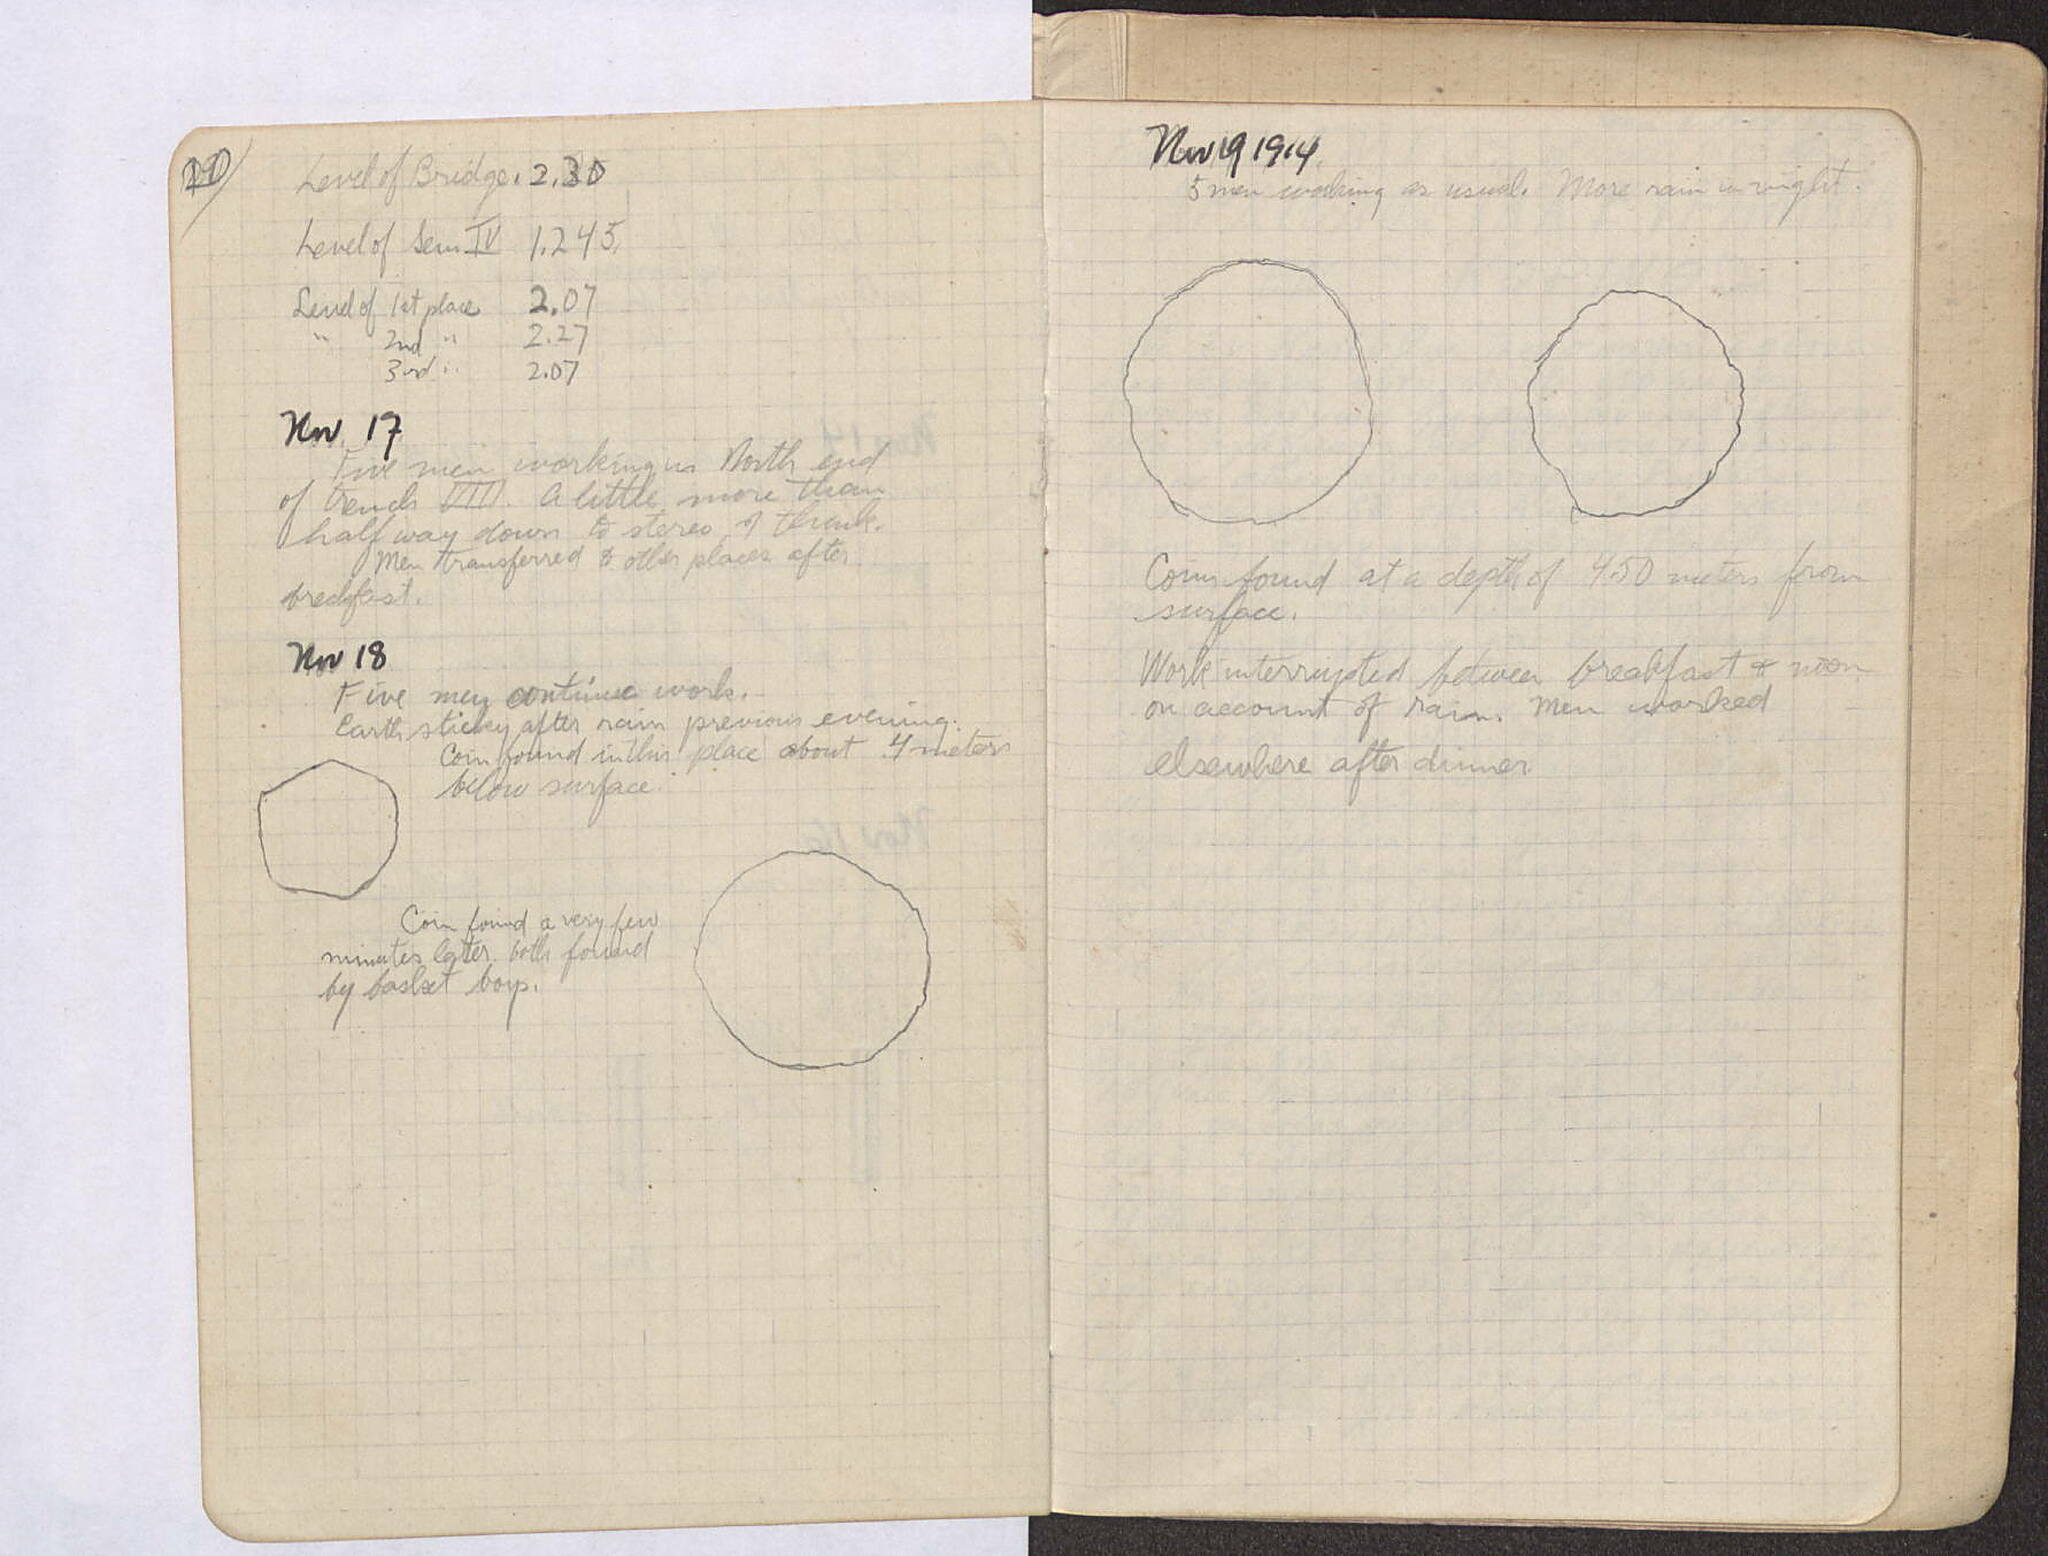 Level of Bridge. 2.30
Level of Sem IV 1.245
Level of 1st place 2.07
" 2nd " 2.27
3rd " 2.07
Nov. 17
Five men working in North end
of trench VIII. A little more than
half way down to stereo, I think.
Men transferred to other places after
brekfast.
Nov 18
Five men continue work.
Earth sticky after rain previous evening.
Coin found in this place about 4 meters
below surface.
Coin found a very few
minutes later. both found
by basket boys.
Nov 19 1914
5 men working as usual. More rain in night.
Coins found at a depth of 4.50 meters from
surface.
Work interrupted between breakfast & noon
on account of rain. Men worked
elsewhere after dinner